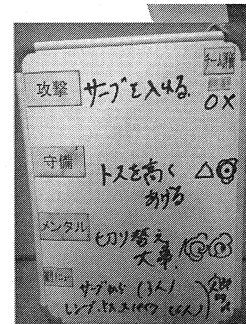 攻撃 サーブを入れる。
○×
守備 トスを高く
あげる
△◎
メンタル 切り替え
大事!
サーブから (3人)
レシーブ、トス、スパイク (6人)